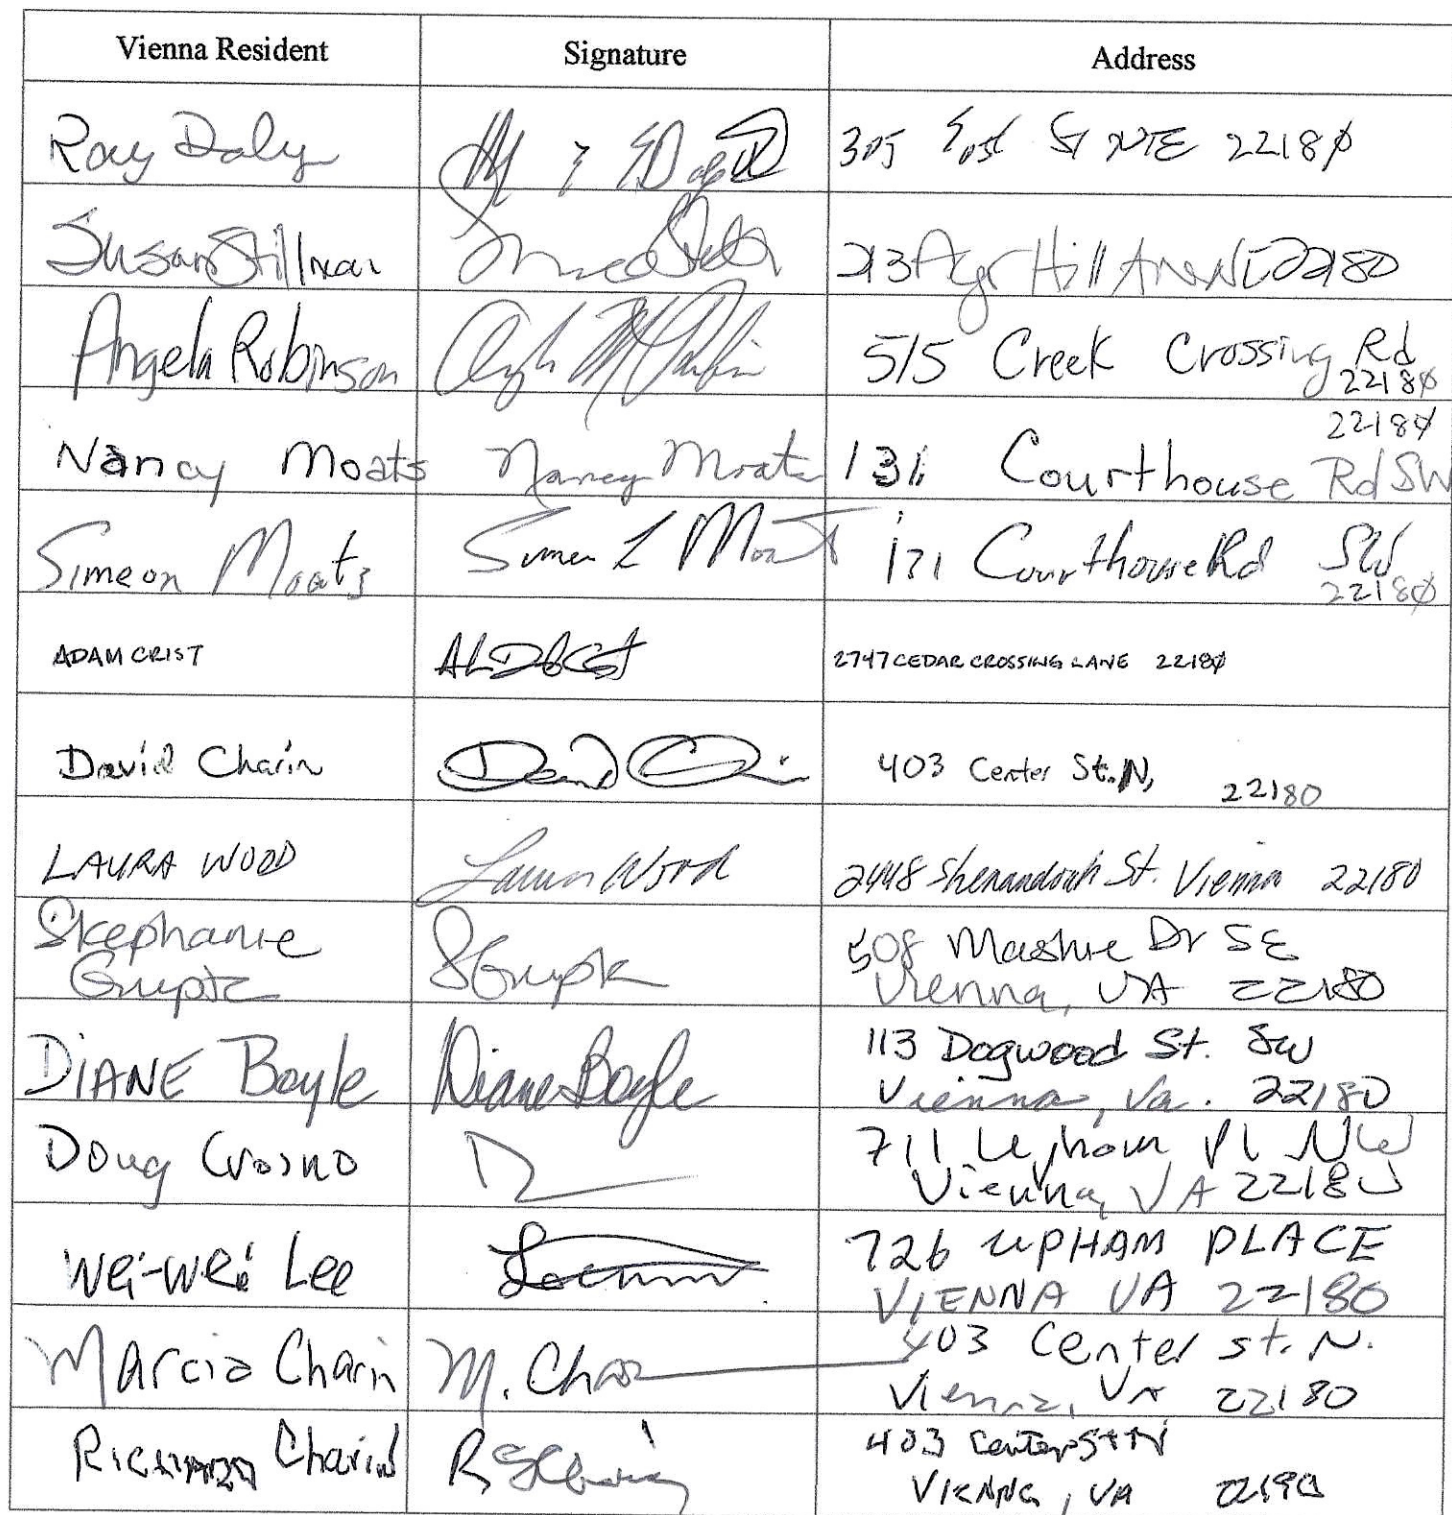 Vienna Resident Signature Address
Ray Daly 305 East St NE 22180
Susan Stillman 213 Ayr Hill Ave NE 22180
Angela Robinson 515 Creek Crossing Rd
22180
22180
Nancy Moats Nancy Moats 131 Courthouse Rd SW
Simeon Moats Simeon L Moats 131 Courthouse Rd SW
22180
ADAM CRIST 2747 CEDAR CROSSING LANE 22180
David Charin David Charin 403 Center St. N,
22180
LAURA WOOD Laura Wood 2448 Shenandoah St. Vienna 22180
Stephanie SGupta 508 Mashie Dr SE
Gupta Vienna, VA 22180
DIANE Boyle Diane Boyle 113 Dogwood St. SW
Vienna, Va. 22180
Doug Crosno 711 Upham Pl NW
Vienna, VA 22180
Wei-Wei Lee 726 UPHAM PLACE
VIENNA VA 22180
Marcia Charin M. Char 403 Center St. N.
Vienna, VA 22180
Richard Charin 403 Center St N
Vienna, VA